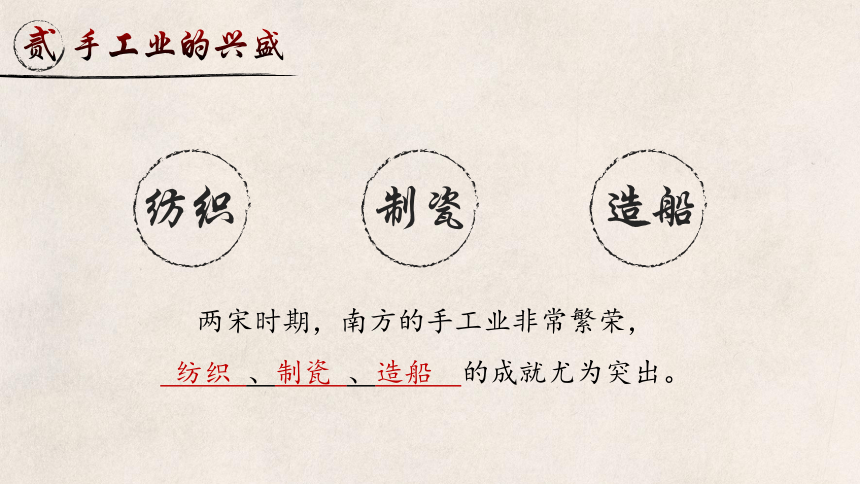 贰 手工业的兴盛
纺织 制瓷 造船
两宋时期，南方的手工业非常繁荣，
纺织、制瓷、造船 的成就尤为突出。